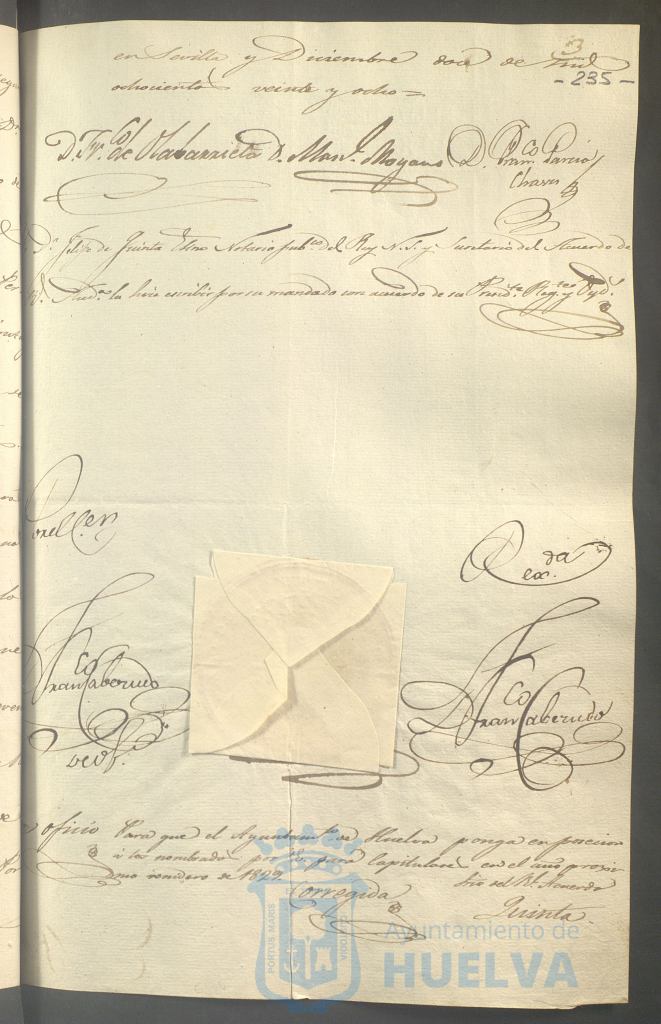 3
- 235 -
en Sevilla y Diciembre doce de mil
ochocientos veinte y ocho =
D. Fr.co de Olabarrieta D. Man.l Moyano D. Fran.co Garcia
Chaves
D.n Felipe de Quinta Notario pub.co del Rey N. S. y Secretario del Acuerdo de
Aud.a la hice escribir por su mandado con acuerdo de su Presid.te Reg.te y Oyd.s
Chanciller
Fran.co Caberudo
Fran.co Caberudo
oficio Para que el Ayuntam.to de Huelva ponga en posesion
a los nombrados por para Capitulares en el año proxi
mo venidero de 1829. Srio del Rl. Acuerdo
Corregida
Quinta
PORTUS MARIS
Ayuntamiento de
HUELVA